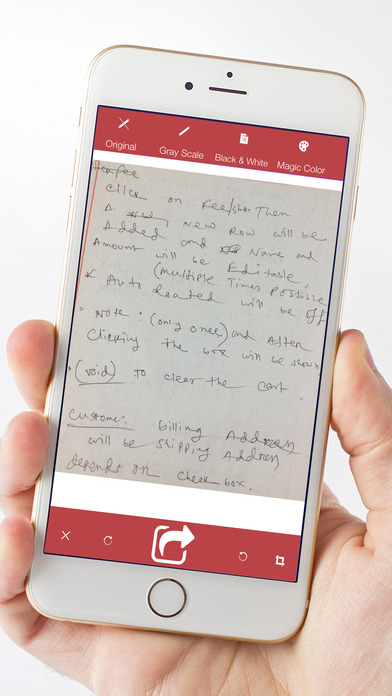 Original
Gray Scale
Black & White
Magic Color
Click on Fee/ Then
A new Row will be
Added and Name and
Amount will be Editable,
(Multiple Times possible
& Auto will be Off
Note: (only once) and After
Clicking The box will be shown
(void) To clear the cart.
Customer: billing Address
will be shipping Address
depends on check box.